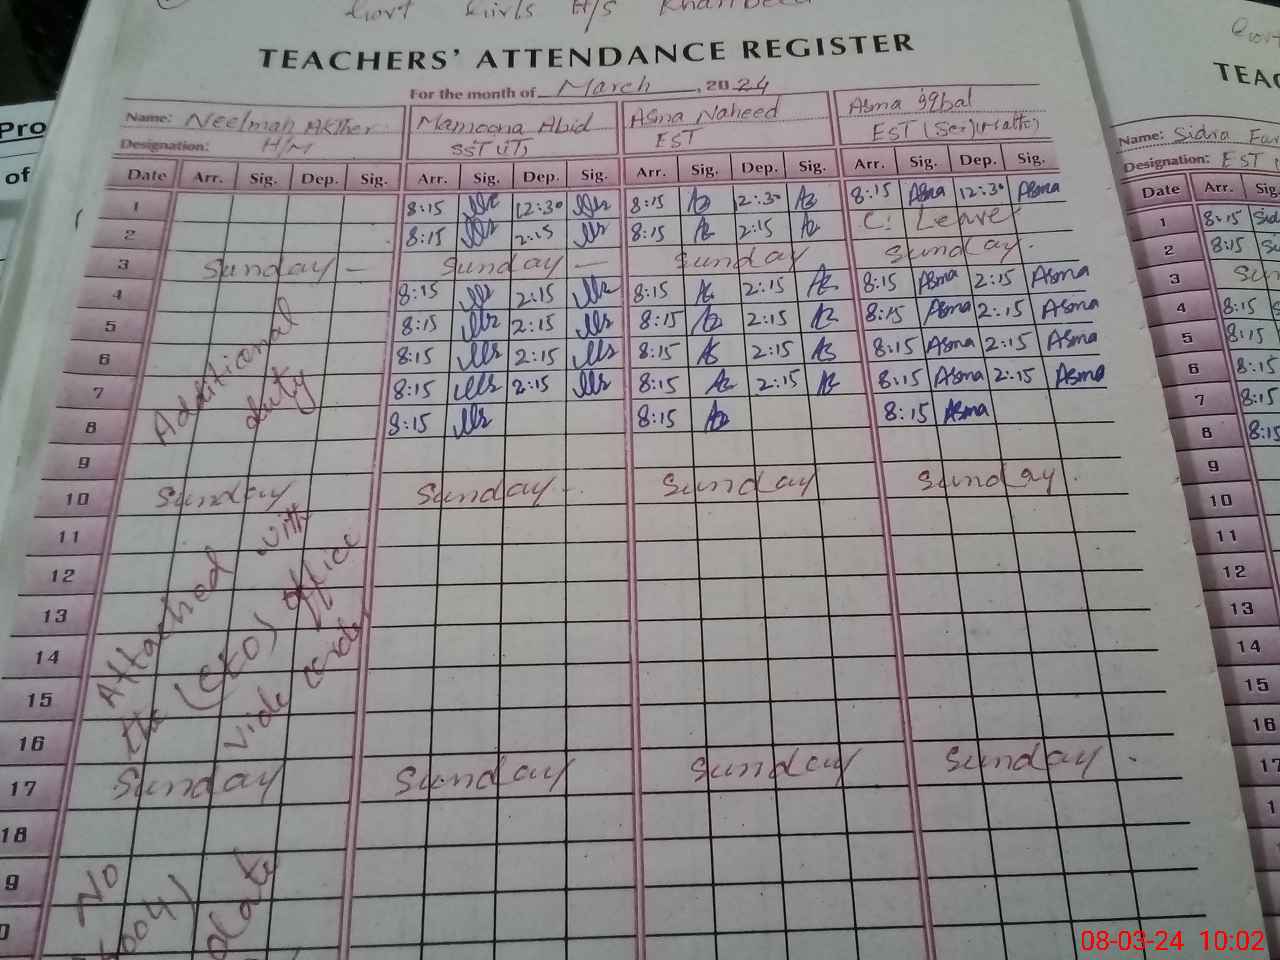 Govt Girls H/S
TEACHERS' ATTENDANCE REGISTER
For the month of March, 2024
Name: Neelmah Akther Mamoona Abid Asma Naheed Asma Iqbal
Designation: H/M SST (IT) EST EST (Sci)(Math)
Date Arr. Sig. Dep. Sig. Arr. Sig. Dep. Sig. Arr. Sig. Dep. Sig. Arr. Sig. Dep. Sig.
1 8:15 12:30 8:15 2:30 8:15 Asma 12:30 Asma
2 8:15 2:15 8:15 2:15 C. Leave
3 Sunday – Sunday – Sunday Sunday.
4 8:15 2:15 8:15 2:15 8:15 Asma 2:15 Asma
5 8:15 2:15 8:15 2:15 8:15 Asma 2:15 Asma
6 8:15 2:15 8:15 2:15 8:15 Asma 2:15 Asma
7 8:15 2:15 8:15 2:15 8:15 Asma 2:15 Asma
8 8:15 8:15 8:15 Asma
Additional
duty
9
10 Sunday Sunday Sunday Sunday.
11
12
13
14
15
16
Attached with
the (CEO) office
vide order
17 Sunday Sunday Sunday Sunday
18
9
No
date
Pro
of
TEAC
Name: Sidra
Designation: EST
Date Arr. Sig.
1 8:15
2 8:15
3
4 8:15
5 8:15
6 8:15
7 8:15
8 8:15
9
10
11
12
13
14
15
16
17
08-03-24 10:02